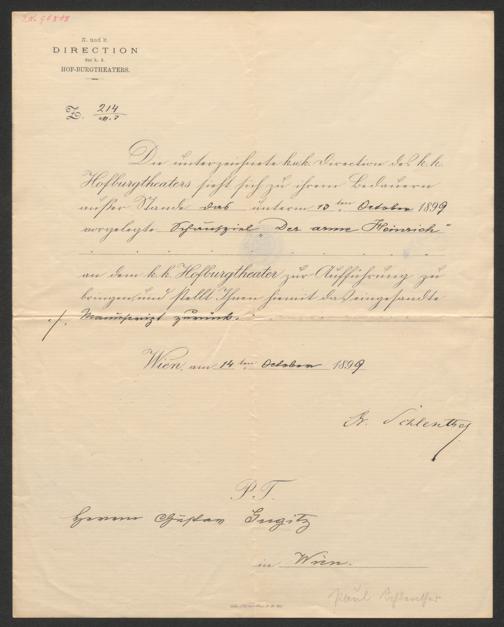 K. und k.
DIRECTION
des k. k.
HOF-BURGTHEATERS.
Z. 214
Die unterzeichnete k.u.k. Direction des k. k.
Hofburgtheaters sieht sich zu ihrem Bedauern
außer Stande das unterm 13ten October 1899
vorgelegte Schauspiel „Der arme Heinrich“
an dem k. k. Hofburgtheater zur Aufführung zu
bringen, und stellt Ihnen hiemit das eingesandte
./. Manuscript zurück.
Wien, am 14ten October 1899
Dr. Schlenther
P. T.
Herrn Gustav Gugitz
in Wien.
Paul Schlenther